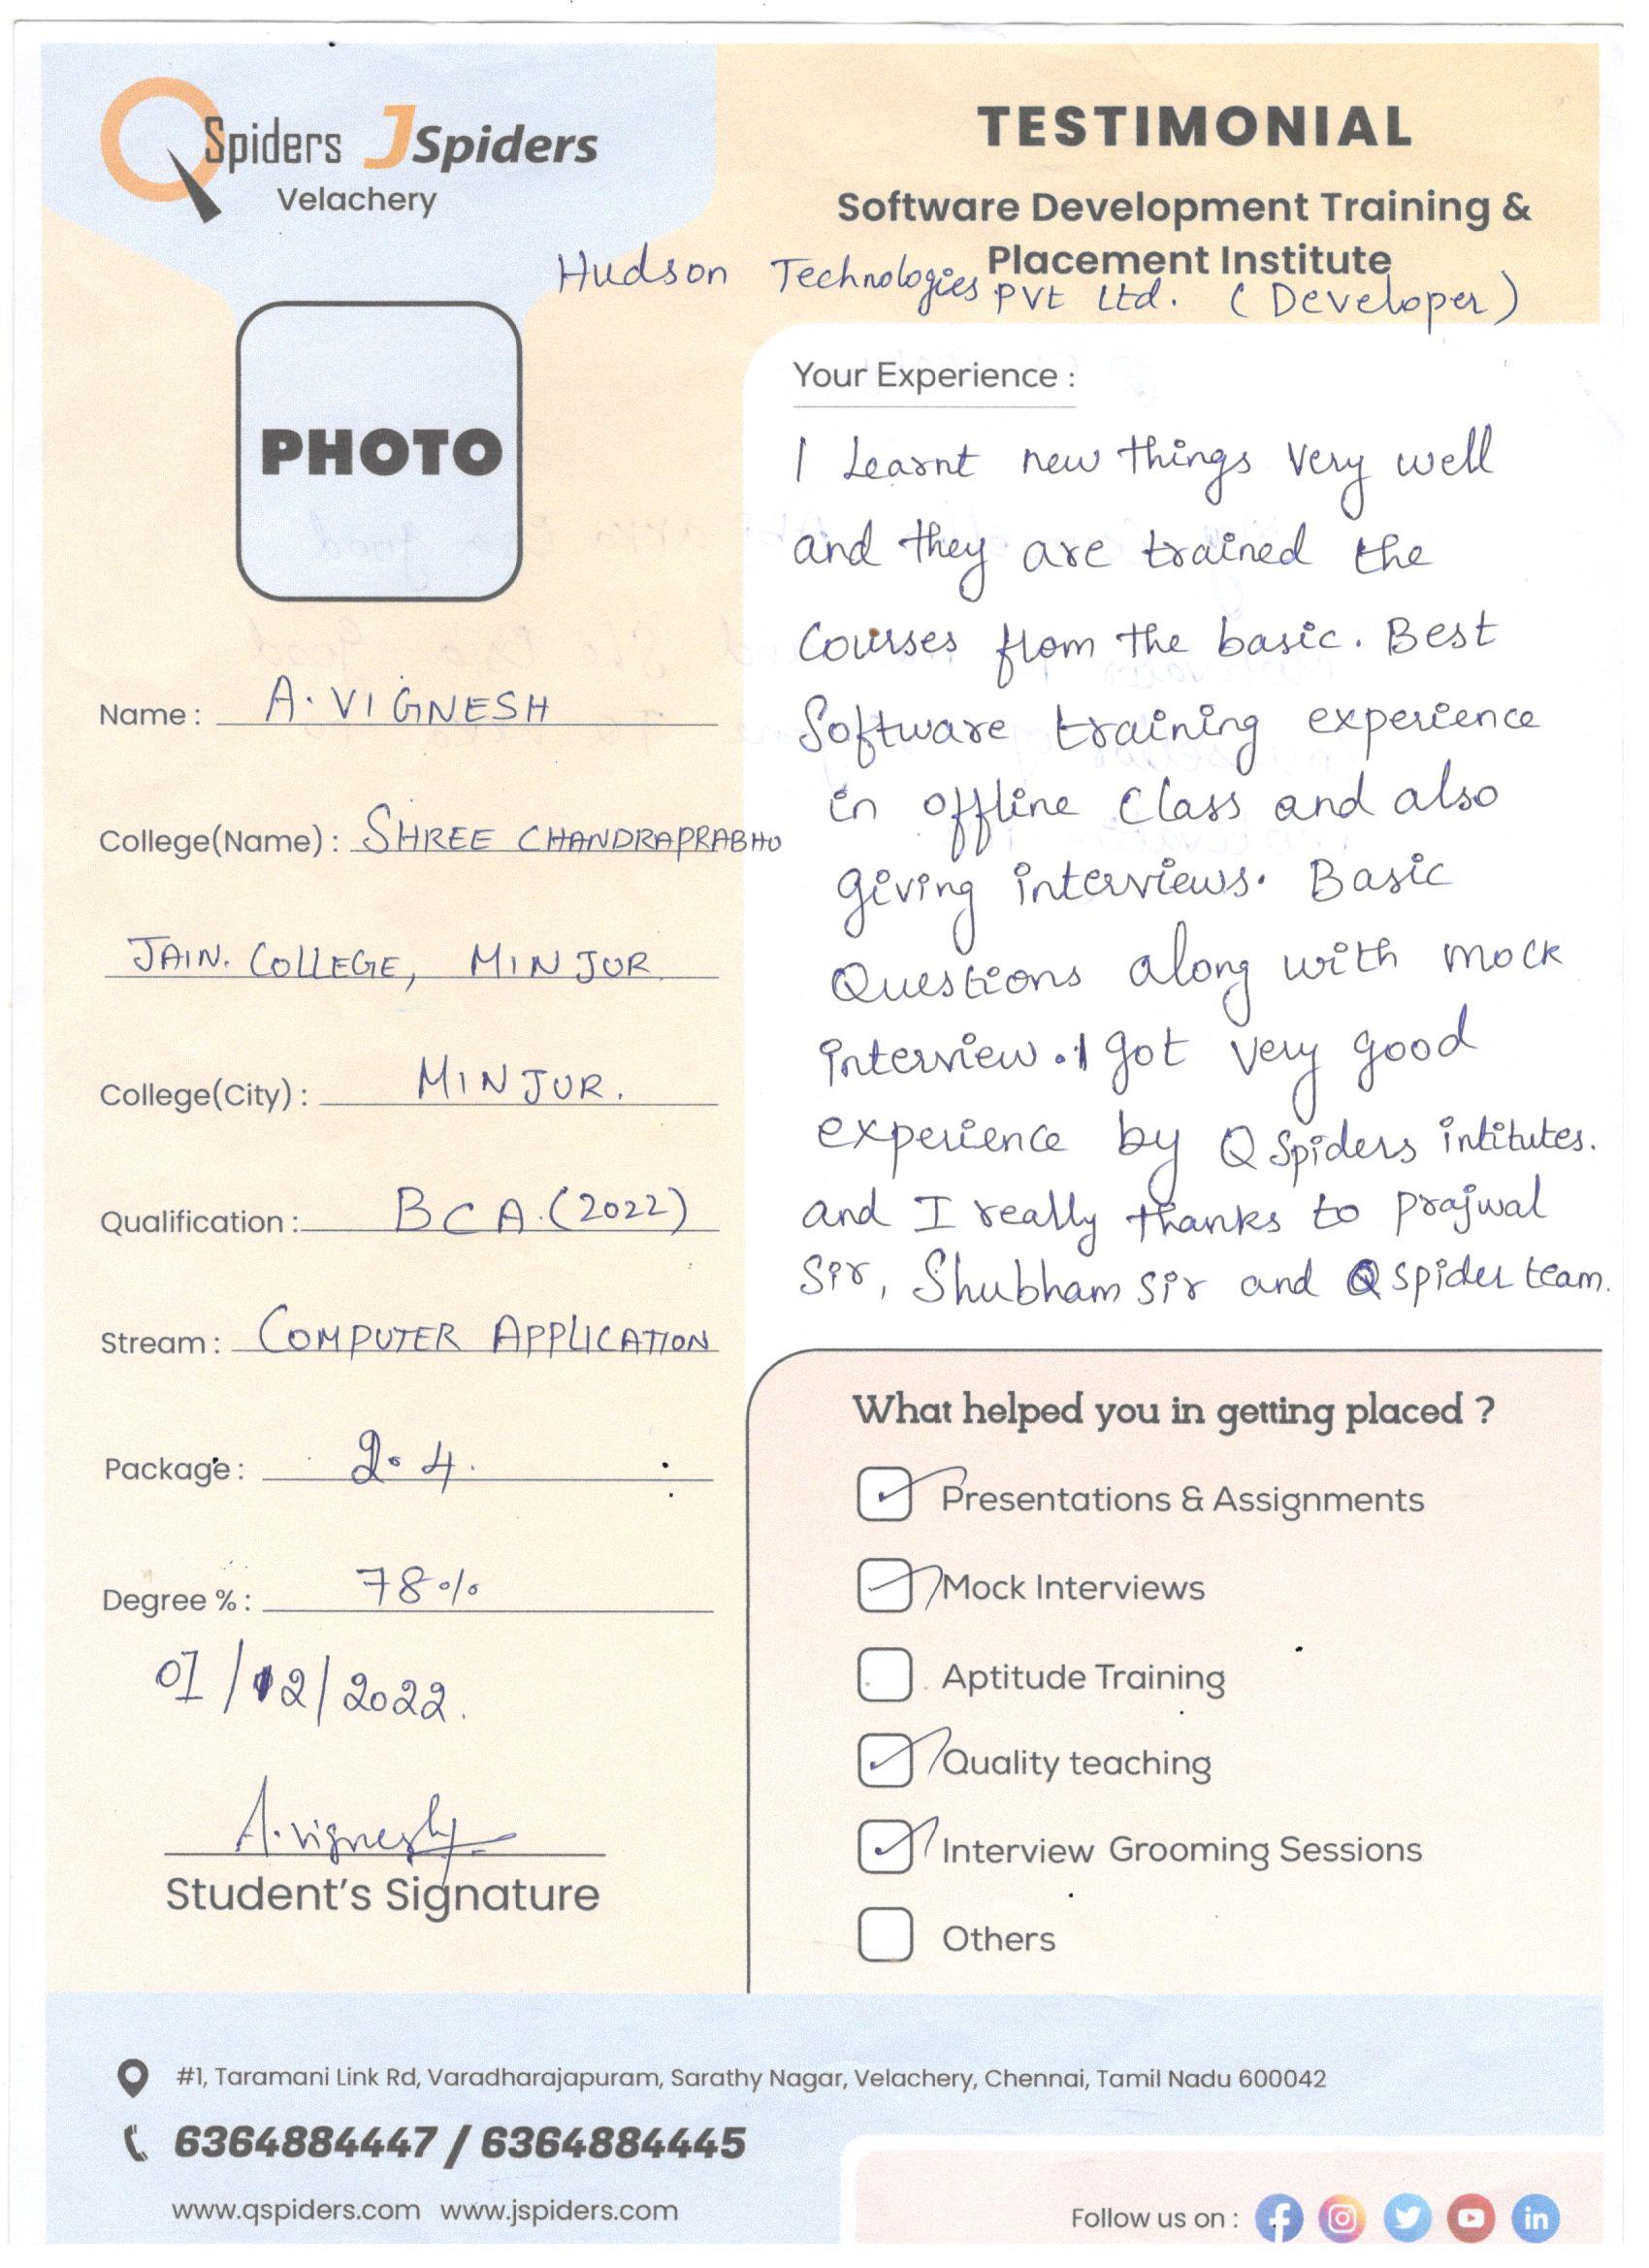 QSpiders JSpiders
Velachery
TESTIMONIAL
Software Development Training &
Placement Institute
Hudson Technologies PVt Ltd. (Developer)
PHOTO
Name : A. VIGNESH
College(Name) : SHREE CHANDRAPRABHU
JAIN. COLLEGE, MINJUR
College(City) : MINJUR.
Qualification : BCA. (2022)
Stream : COMPUTER APPLICATION
Package : 2.4.
Degree % : 78%
01/12/2022.
A. Vignesh
Student's Signature
Your Experience :
I Learnt new things very well
and they are trained the
Courses from the basic. Best
Software training experience
in offline Class and also
giving interviews. Basic
Questions along with mock
interview. I got very good
experience by Q Spiders intitutes.
and I really thanks to prajwal
Sir, Shubham sir and Q spider team.
What helped you in getting placed ?
Presentations & Assignments
Mock Interviews
Aptitude Training
Quality teaching
Interview Grooming Sessions
Others
#1, Taramani Link Rd, Varadharajapuram, Sarathy Nagar, Velachery, Chennai, Tamil Nadu 600042
6364884447 / 6364884445
www.qspiders.com www.jspiders.com
Follow us on :